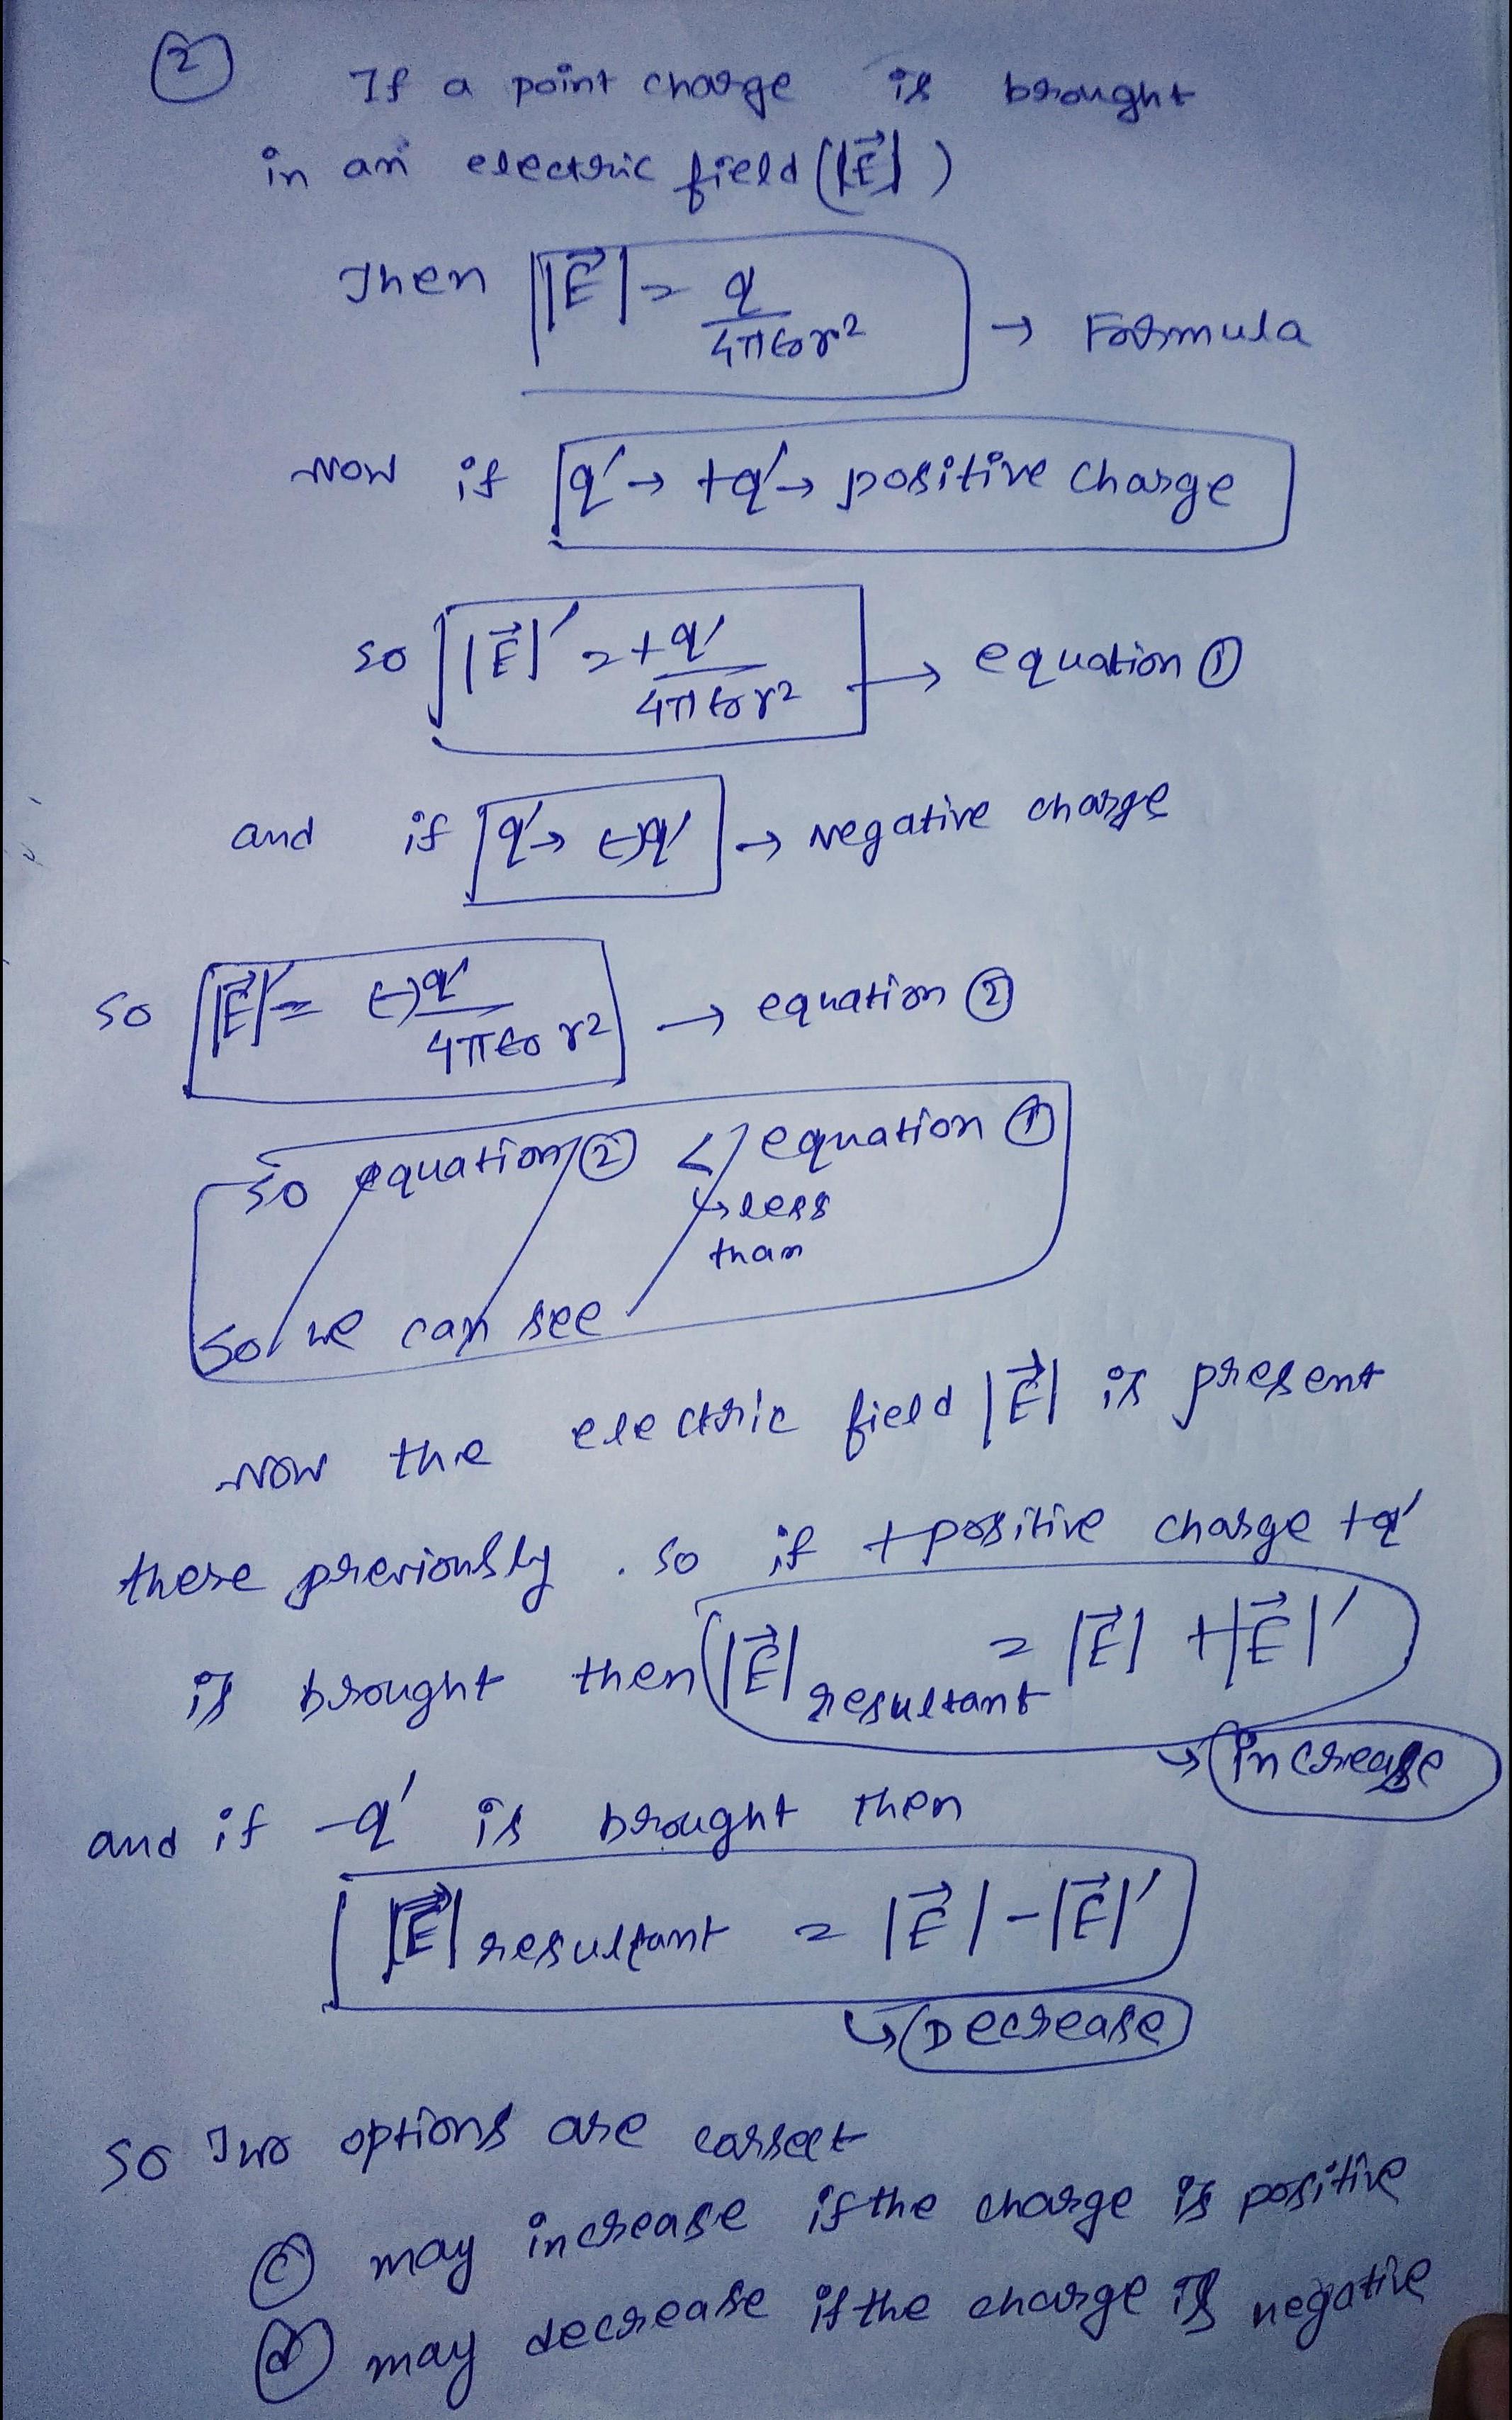 ② If a point charge is brought
in an electric field (|E⃗|)
Then |E⃗| = q / 4πε₀r² → Formula
Now if q' → +q' → positive charge
so |E⃗|' = +q' / 4πε₀r² → equation ①
and if q' → (-)q' → Negative charge
so |E⃗|' = (-)q' / 4πε₀r² → equation ②
so equation ② < equation ①
↳ less
than
So we can see
Now the electric field |E⃗| is present
there previously . so if + positive charge +q'
is brought then |E⃗| resultant = |E⃗| + |E⃗|'
↳ Increase
and if -q' is brought then
|E⃗| resultant = |E⃗| - |E⃗|'
↳ Decrease
so Two options are correct
ⓒ may increase if the charge is positive
ⓓ may decrease if the charge is negative